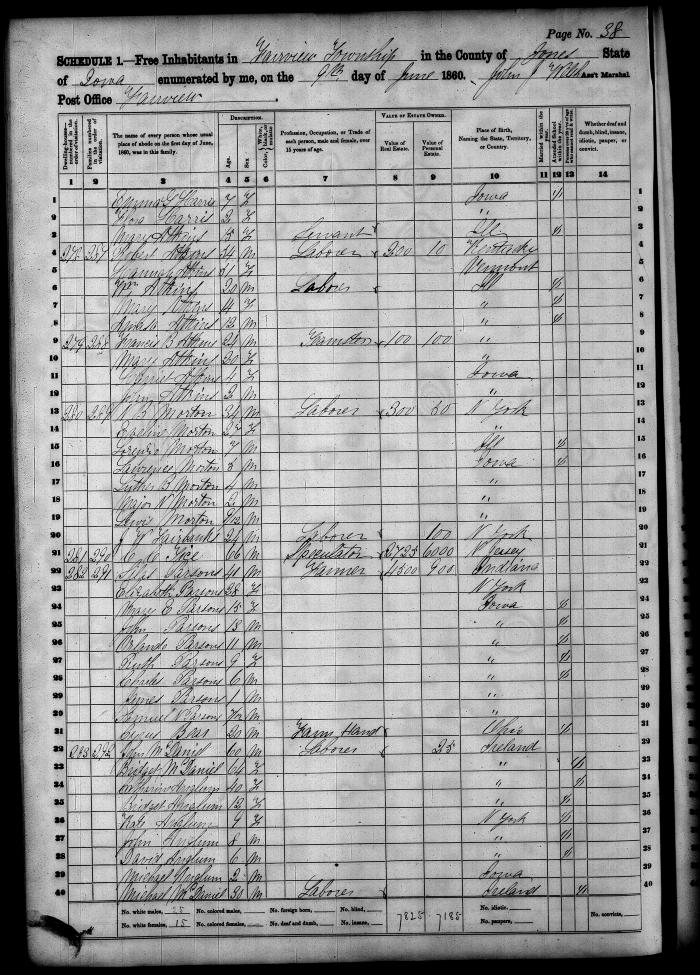 Page No. 38
SCHEDULE 1.—Free Inhabitants in Fairview Township in the County of Jones State
of Iowa enumerated by me, on the 9th day of June 1860. John Ass't Marshal
Post Office Fairview
Dwelling-houses—numbered in the order of visitation.
Families numbered in the order of visitation.
The name of every person whose usual place of abode on the first day of June, 1860, was in this family.
DESCRIPTION.
Age.
Sex.
Color, White, black, or mulatto
Profession, Occupation, or Trade of each person, male and female, over 15 years of age.
VALUE OF ESTATE OWNED.
Value of Real Estate.
Value of Personal Estate.
Place of Birth, Naming the State, Territory, or Country.
Married within the year.
Attended School within the year.
Whether deaf and dumb, blind, insane, idiotic, pauper, or convict.
1 2 3 4 5 6 7 8 9 10 11 12 13 14
1 Emma G Harris 7 F Iowa 1
2 Flora Harris 2 F " 2
3 Mary Atkins 15 F Servant Ill 3
4 278 287 Robert Atkins 54 M Laborer 200 10 Kentucky 4
5 Hannah Atkins 51 F Vermont 5
6 Wm Atkins 20 M Laborer Ill 6
7 Mary Atkins 14 F " 7
8 Atkins 12 M " 8
9 279 288 Francis B Atkins 24 M 100 100 " 9
10 Mary Atkins 20 F " 10
11 Harriet Atkins 4 F Iowa 11
12 Atkins 2 M " 12
13 280 289 Morton M Laborer 300 50 N York 13
14 Eveline Morton 27 F " 14
15 Lorenzo Morton 7 M Ill 15
16 Lawrence Morton M Iowa 16
17 Luther B Morton 4 M " 17
18 Major N Morton 2 M " 18
19 Lewis Morton M " 19
20 J W Fairbanks 24 M Laborer 100 N York 20
21 281 290 66 M Speculator 2725 6000 N Jersey 21
22 282 291 Silas Parsons 41 M Farmer 4500 900 Indiana 22
23 Elizabeth Parsons 38 F N York 23
24 Mary E Parsons 15 F Iowa 24
25 John Parsons 13 M " 25
26 Orlando Parsons 11 M " 26
27 Ruth Parsons 9 F " 27
28 Charles Parsons 6 M " 28
29 James Parsons 1 M " 29
30 Samuel N Parsons M " 30
31 Cyrus 20 M Farm Hand Ohio 31
32 283 292 John McDaniel 60 M Laborer 25 Ireland 32
33 Bridget McDaniel 64 F " 33
34 Anglum 40 F " 34
35 Bridget Anglum 12 F " 35
36 Kate Anglum 9 F N York 36
37 John Anglum 8 M " 37
38 David Anglum 6 M " 38
39 Michael Anglum 2 M Iowa 39
40 Michael McDaniel 30 M Laborer Ireland 40
No. white males, 25 No. colored males, No. foreign born, No. blind, 7825 7185 No. idiotic, No. convicts,
No. white females, 15 No. colored females, No. deaf and dumb, No. insane, No. paupers,